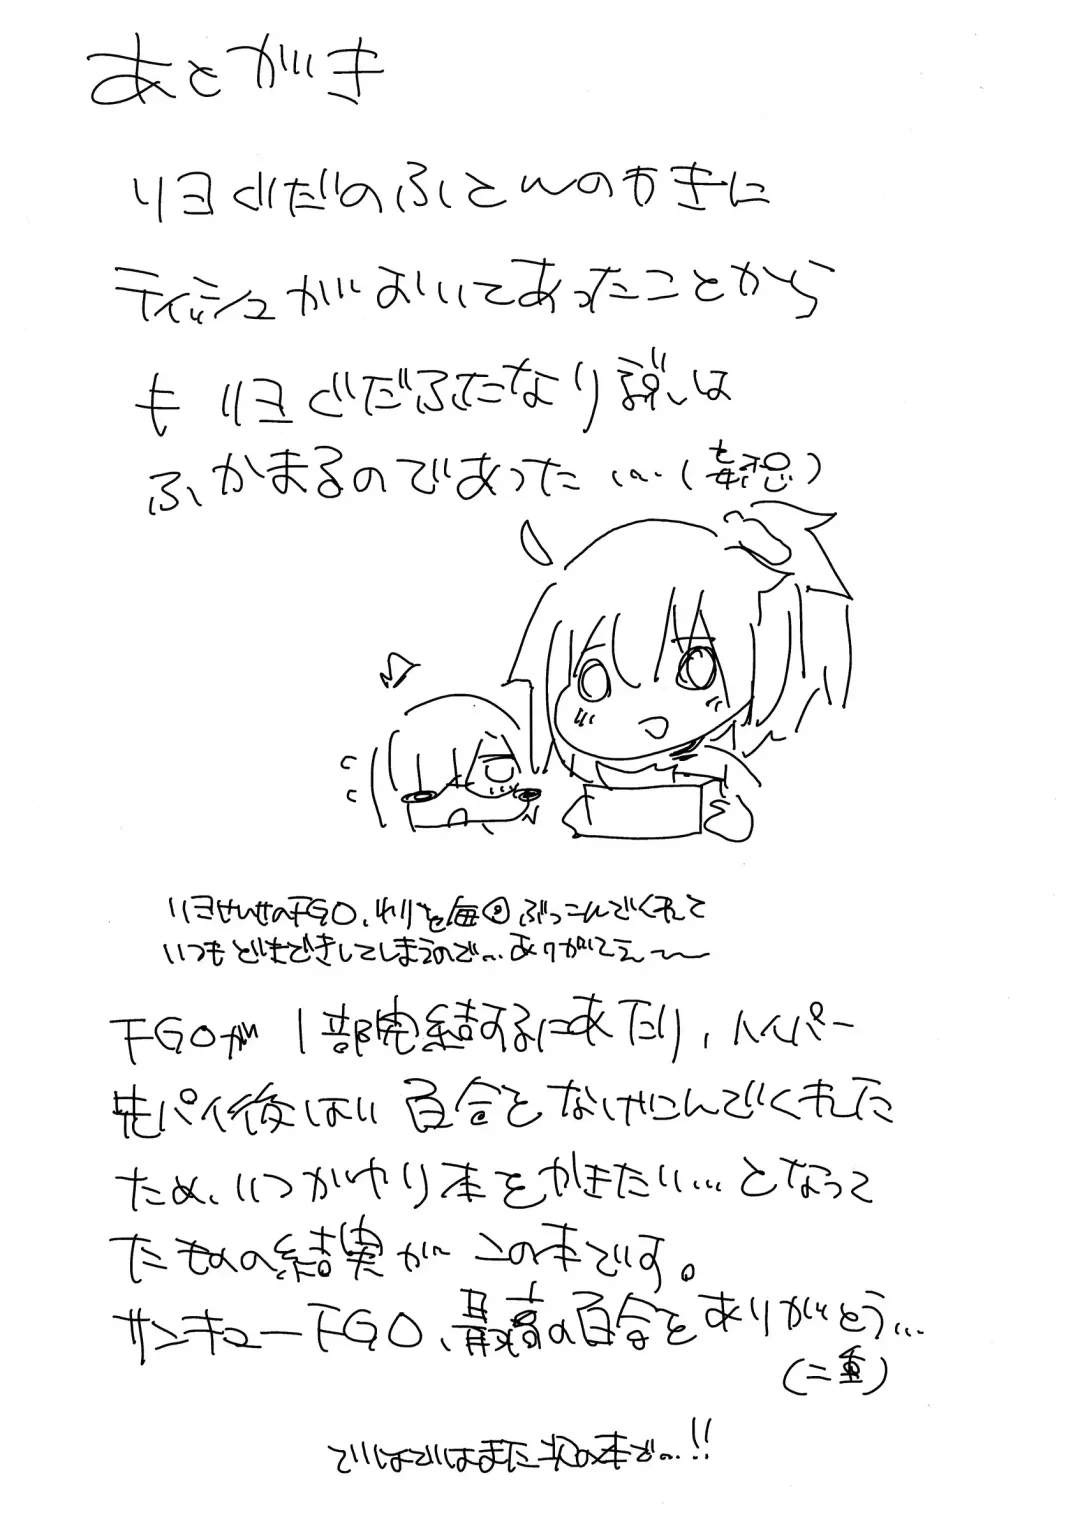 あとがき
リヨぐだのふとんのわきに
ティッシュがおいてあったことから
も リヨぐだふたなり説は
ふかまるのであった …(妄想)
リヨせんせのFGO、わりと毎回ぶっこんでくれて
いつもどきどきしてしまうので…ありがてえ〜〜
FGOが1部完結するにあたり、ハイパー
先パイ後はい百合をなげこんでくれた
ため、いつかやり本をかきたい…となって
たものの結実がこの本です。
サンキューFGO、最高の百合をありがとう…
(二重)
ではではまた次の本で…!!